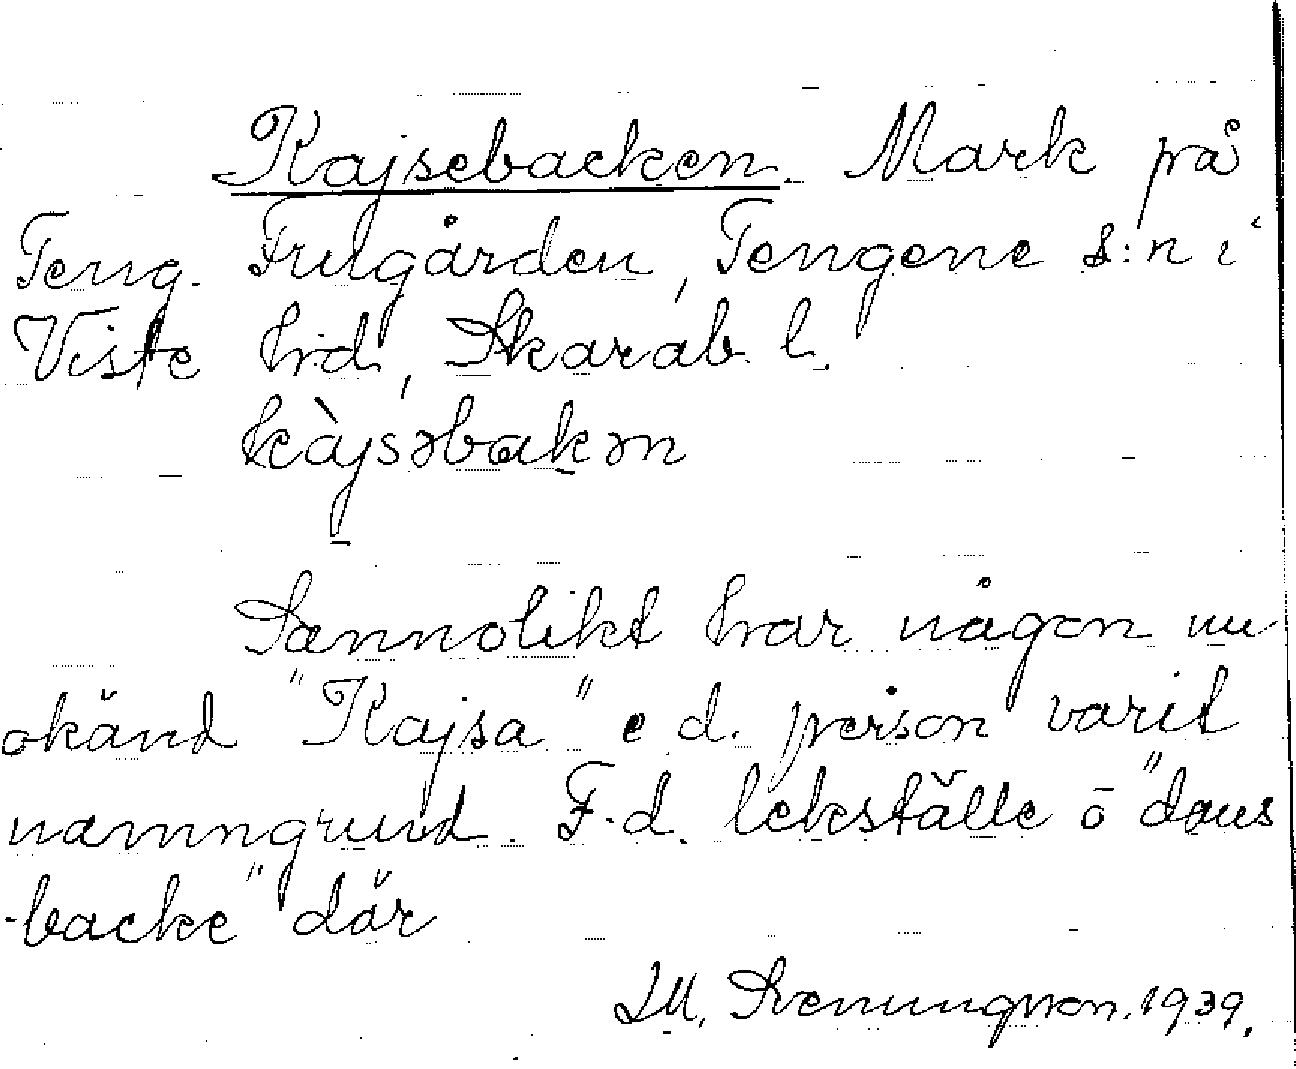 Kajsebacken. Mark på
Teng. Frugården, Tengene s:n i
Viste hrd, Skarab. l.
kàjsəbakən
Sannolikt har någon nu
okänd "Kajsa" e d. person varit
namngrund. F.d. lekställe o "dans
-backe" där
Svenungsson. 1939.